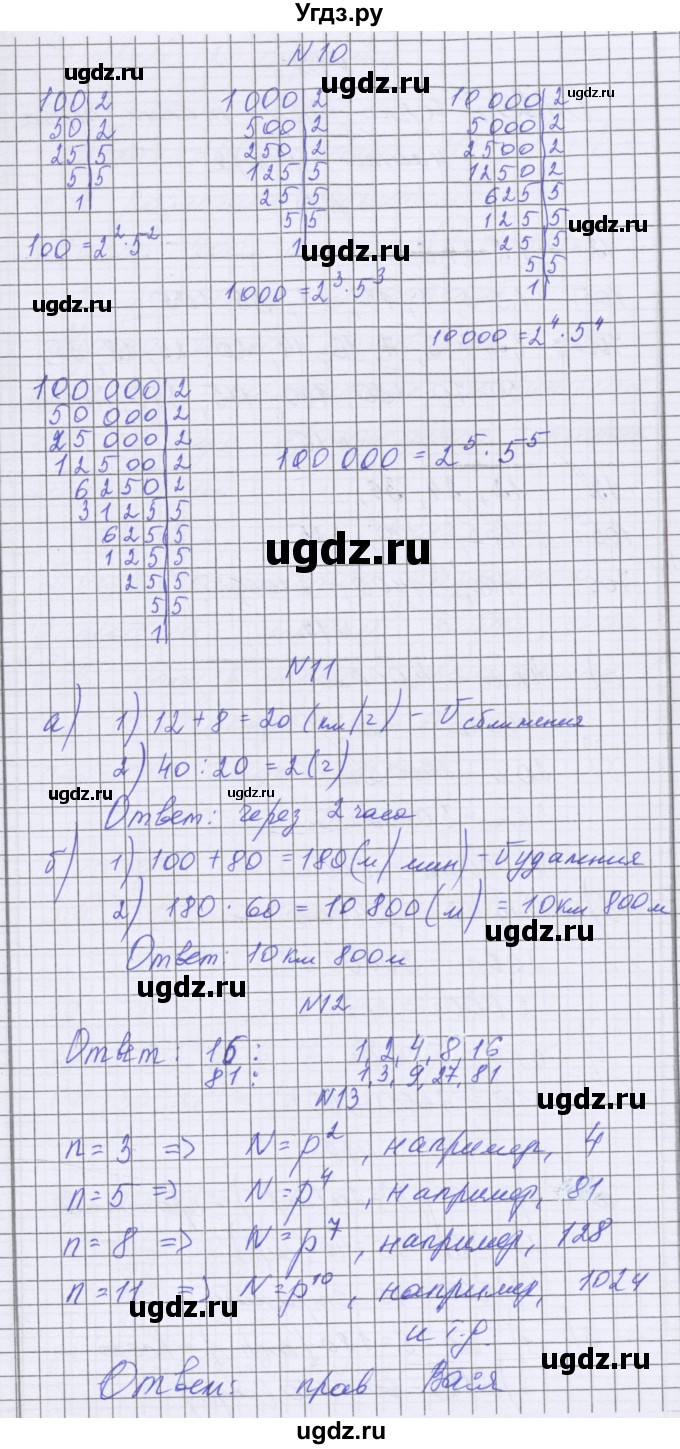 Угдз.ру
ugdz.ru ugdz.ru ugdz.ru
N10
100 | 2
50 | 2
25 | 5
5 | 5
1 |
100 = 2²·5²
1 000 | 2
500 | 2
250 | 2
125 | 5
25 | 5
5 | 5
1
1000 = 2³·5³
10 000 | 2
5000 | 2
2500 | 2
1250 | 2
625 | 5
125 | 5
25 | 5
5 | 5
1 |
10 000 = 2⁴·5⁴
ugdz.ru ugdz.ru ugdz.ru
ugdz.ru
100 000 | 2
50 000 | 2
25 000 | 2
12 500 | 2
6250 | 2
3125 | 5
625 | 5
125 | 5
25 | 5
5 | 5
1 |
100 000 = 2⁵·5⁵
ugdz.ru
N11
а) 1) 12 + 8 = 20 (км/г) – Vсближения
2) 40 : 20 = 2 (г)
ugdz.ru ugdz.ru
Ответ: через 2 часа
б) 1) 100 + 80 = 180 (м/мин) – Vудаления
2) 180 · 60 = 10 800 (м) = 10 км 800 м
ugdz.ru
Ответ: 10 км 800 м
ugdz.ru
N12
Ответ: 16: 1, 2, 4, 8, 16
81: 1, 3, 9, 27, 81
N13
ugdz.ru
n = 3 => N = p², например, 4
n = 5 => N = p⁴, например, 81
n = 8 => N = p⁷, например, 128
n = 11 => N = p¹⁰, например, 1024
ugdz.ru
и т.д.
ugdz.ru
Ответ: прав Вася
ugdz.ru